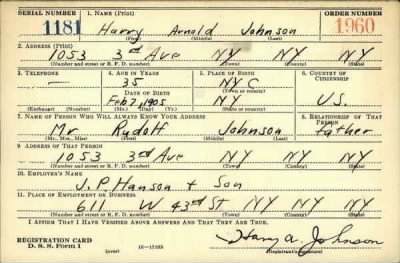 SERIAL NUMBER 1. NAME (Print) ORDER NUMBER
1181 Harry Arnold Johnson 1960
(First) (Middle) (Last)
2. ADDRESS (Print)
1053 3rd Ave NY NY NY
(Number and street or R. F. D. number) (Town) (County) (State)
3. TELEPHONE 4. AGE IN YEARS 5. PLACE OF BIRTH 6. COUNTRY OF CITIZENSHIP
— 35 NYC
DATE OF BIRTH (Town or county)
Feb 7, 1905 NY U.S.
(Exchange) (Number) (Mo.) (Day) (Yr.) (State or country)
7. NAME OF PERSON WHO WILL ALWAYS KNOW YOUR ADDRESS 8. RELATIONSHIP OF THAT PERSON
Mr Rudolf Johnson father
(Mr., Mrs., Miss) (First) (Middle) (Last)
9. ADDRESS OF THAT PERSON
1053 3rd Ave NY NY NY
(Number and street or R. F. D. number) (Town) (County) (State)
10. EMPLOYER'S NAME
J. P. Hanson + Son
11. PLACE OF EMPLOYMENT OR BUSINESS
611 W 43rd St NY NY NY
(Number and street or R. F. D. number) (Town) (County) (State)
I AFFIRM THAT I HAVE VERIFIED ABOVE ANSWERS AND THAT THEY ARE TRUE.
REGISTRATION CARD
D. S. S. Form 1 (over) 16—17105 Harry A Johnson
(Registrant's signature)